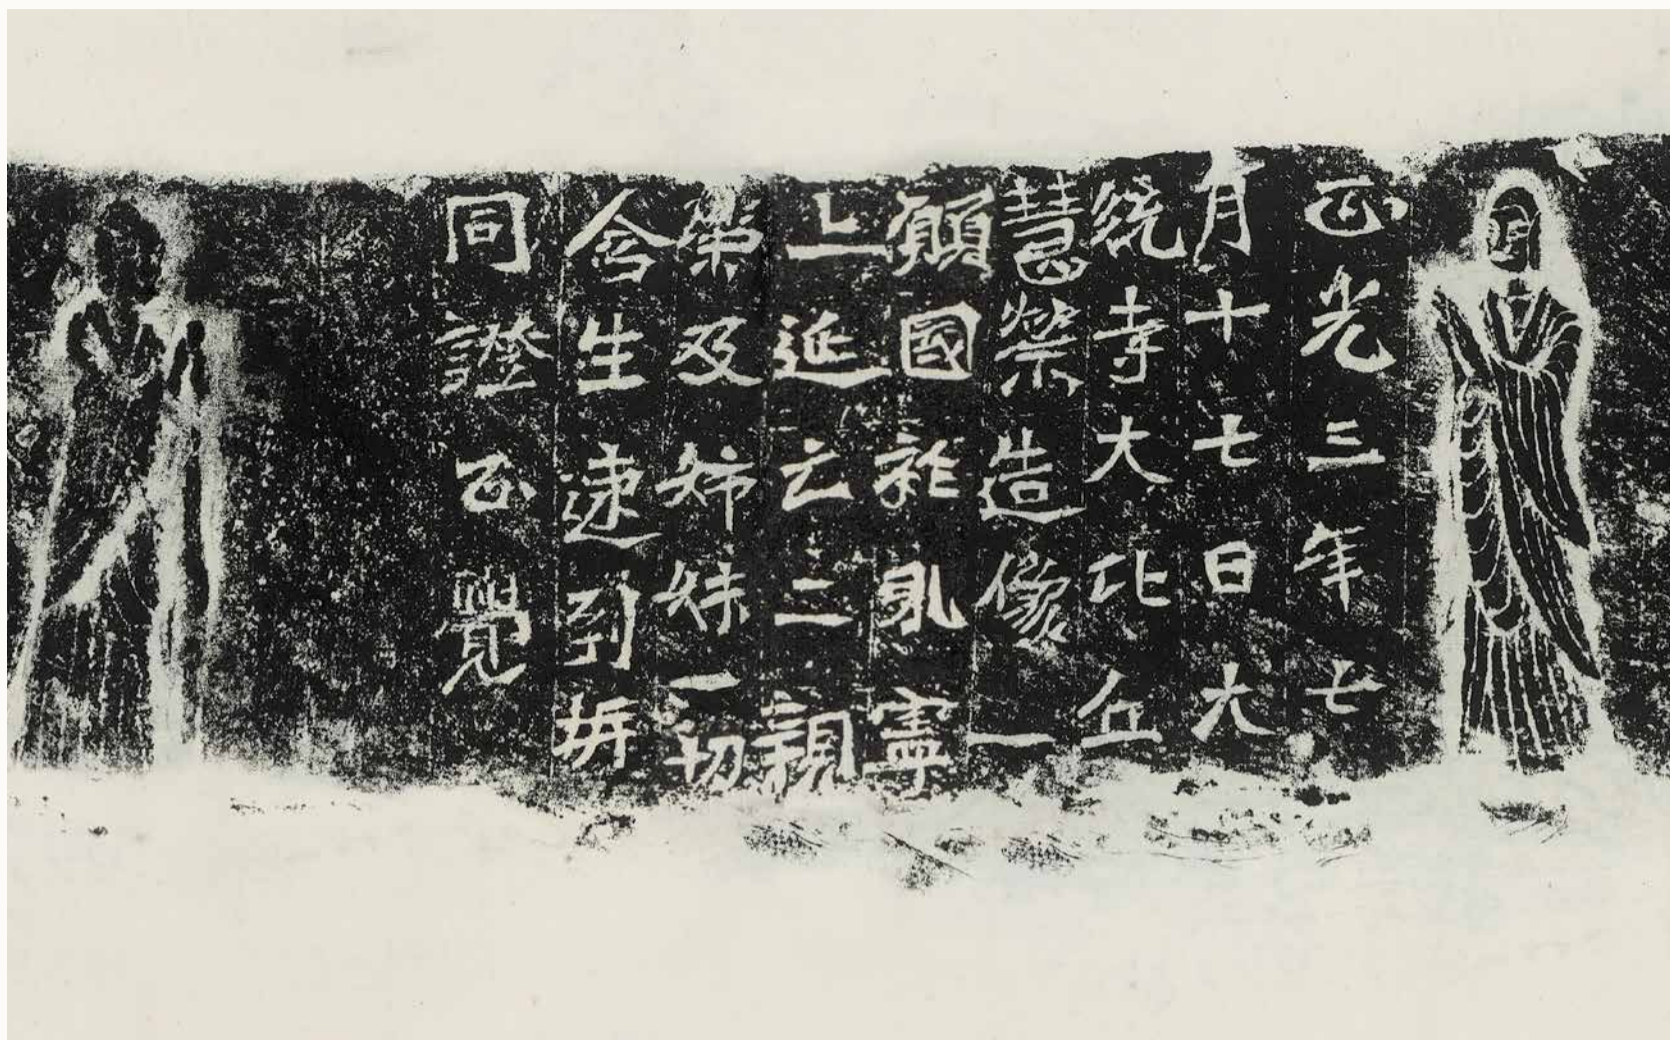 正光三年七
月十七日大
統寺大比丘
慧榮造像一
願國祚寧
上延亡二親
榮及姉妹一切
含生速到
同證正覺